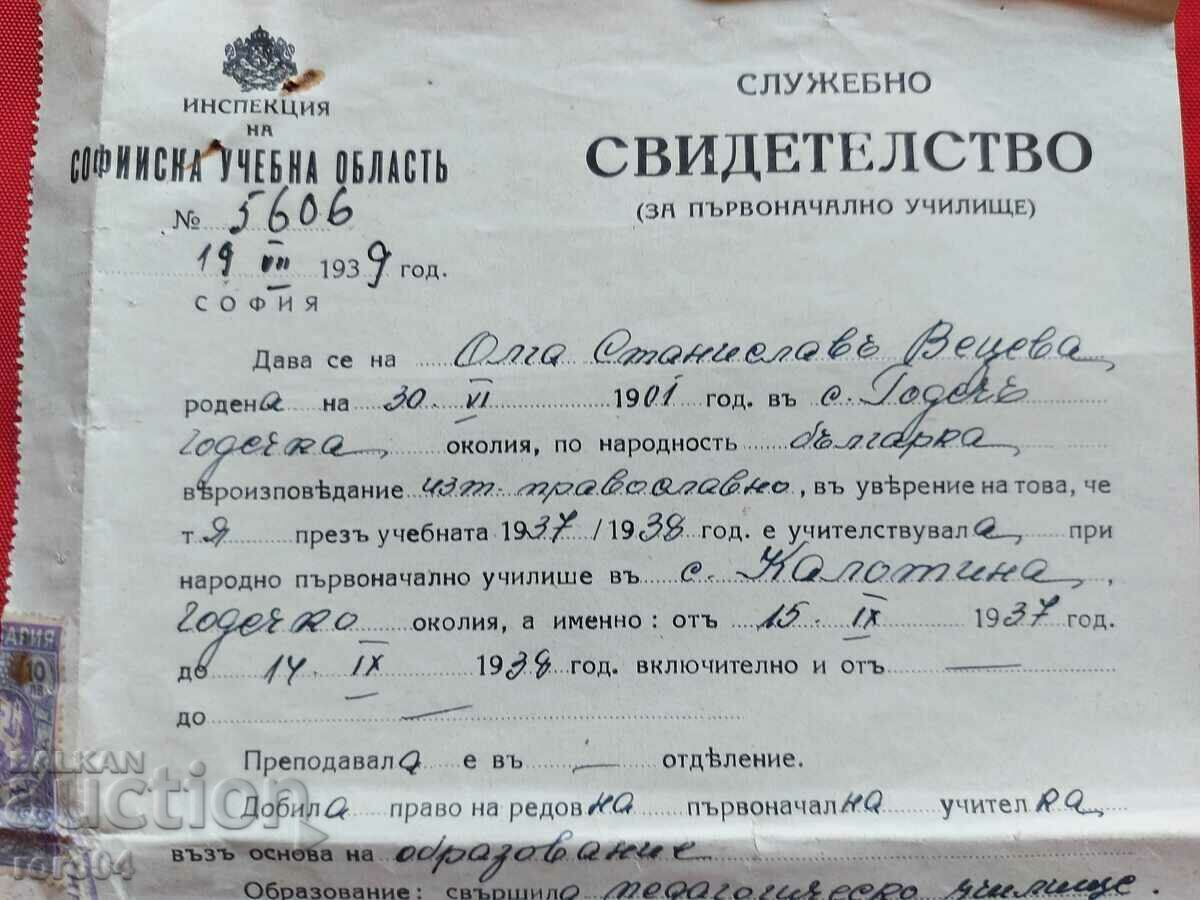 ИНСПЕКЦИЯ
НА
СОФИЙСКА УЧЕБНА ОБЛАСТЬ
№ 5606
19 VII 1939 год.
СОФИЯ
СЛУЖЕБНО
СВИДЕТЕЛСТВО
(ЗА ПЪРВОНАЧАЛНО УЧИЛИЩЕ)
Дава се на Олга Станиславъ Вецева
родена на 30. VI 1901 год. въ с. Годечъ
Годечка околия, по народность българка
вѣроизповѣдание изт. православно, въ увѣрение на това, че
тя презъ учебната 1937/1938 год. е учителствувала при
народно първоначално училище въ с. Калотина,
Годечко околия, а именно: отъ 15. IX 1937 год.
до 14. IX 1938 год. включително и отъ —
до —
Преподавала е въ — отдѣление.
Добила право на редовна първоначална учителка
възъ основа на образование
Образование: свършила педагогическо училище.
10
ЛВ.
BALKAN
auction
rors04